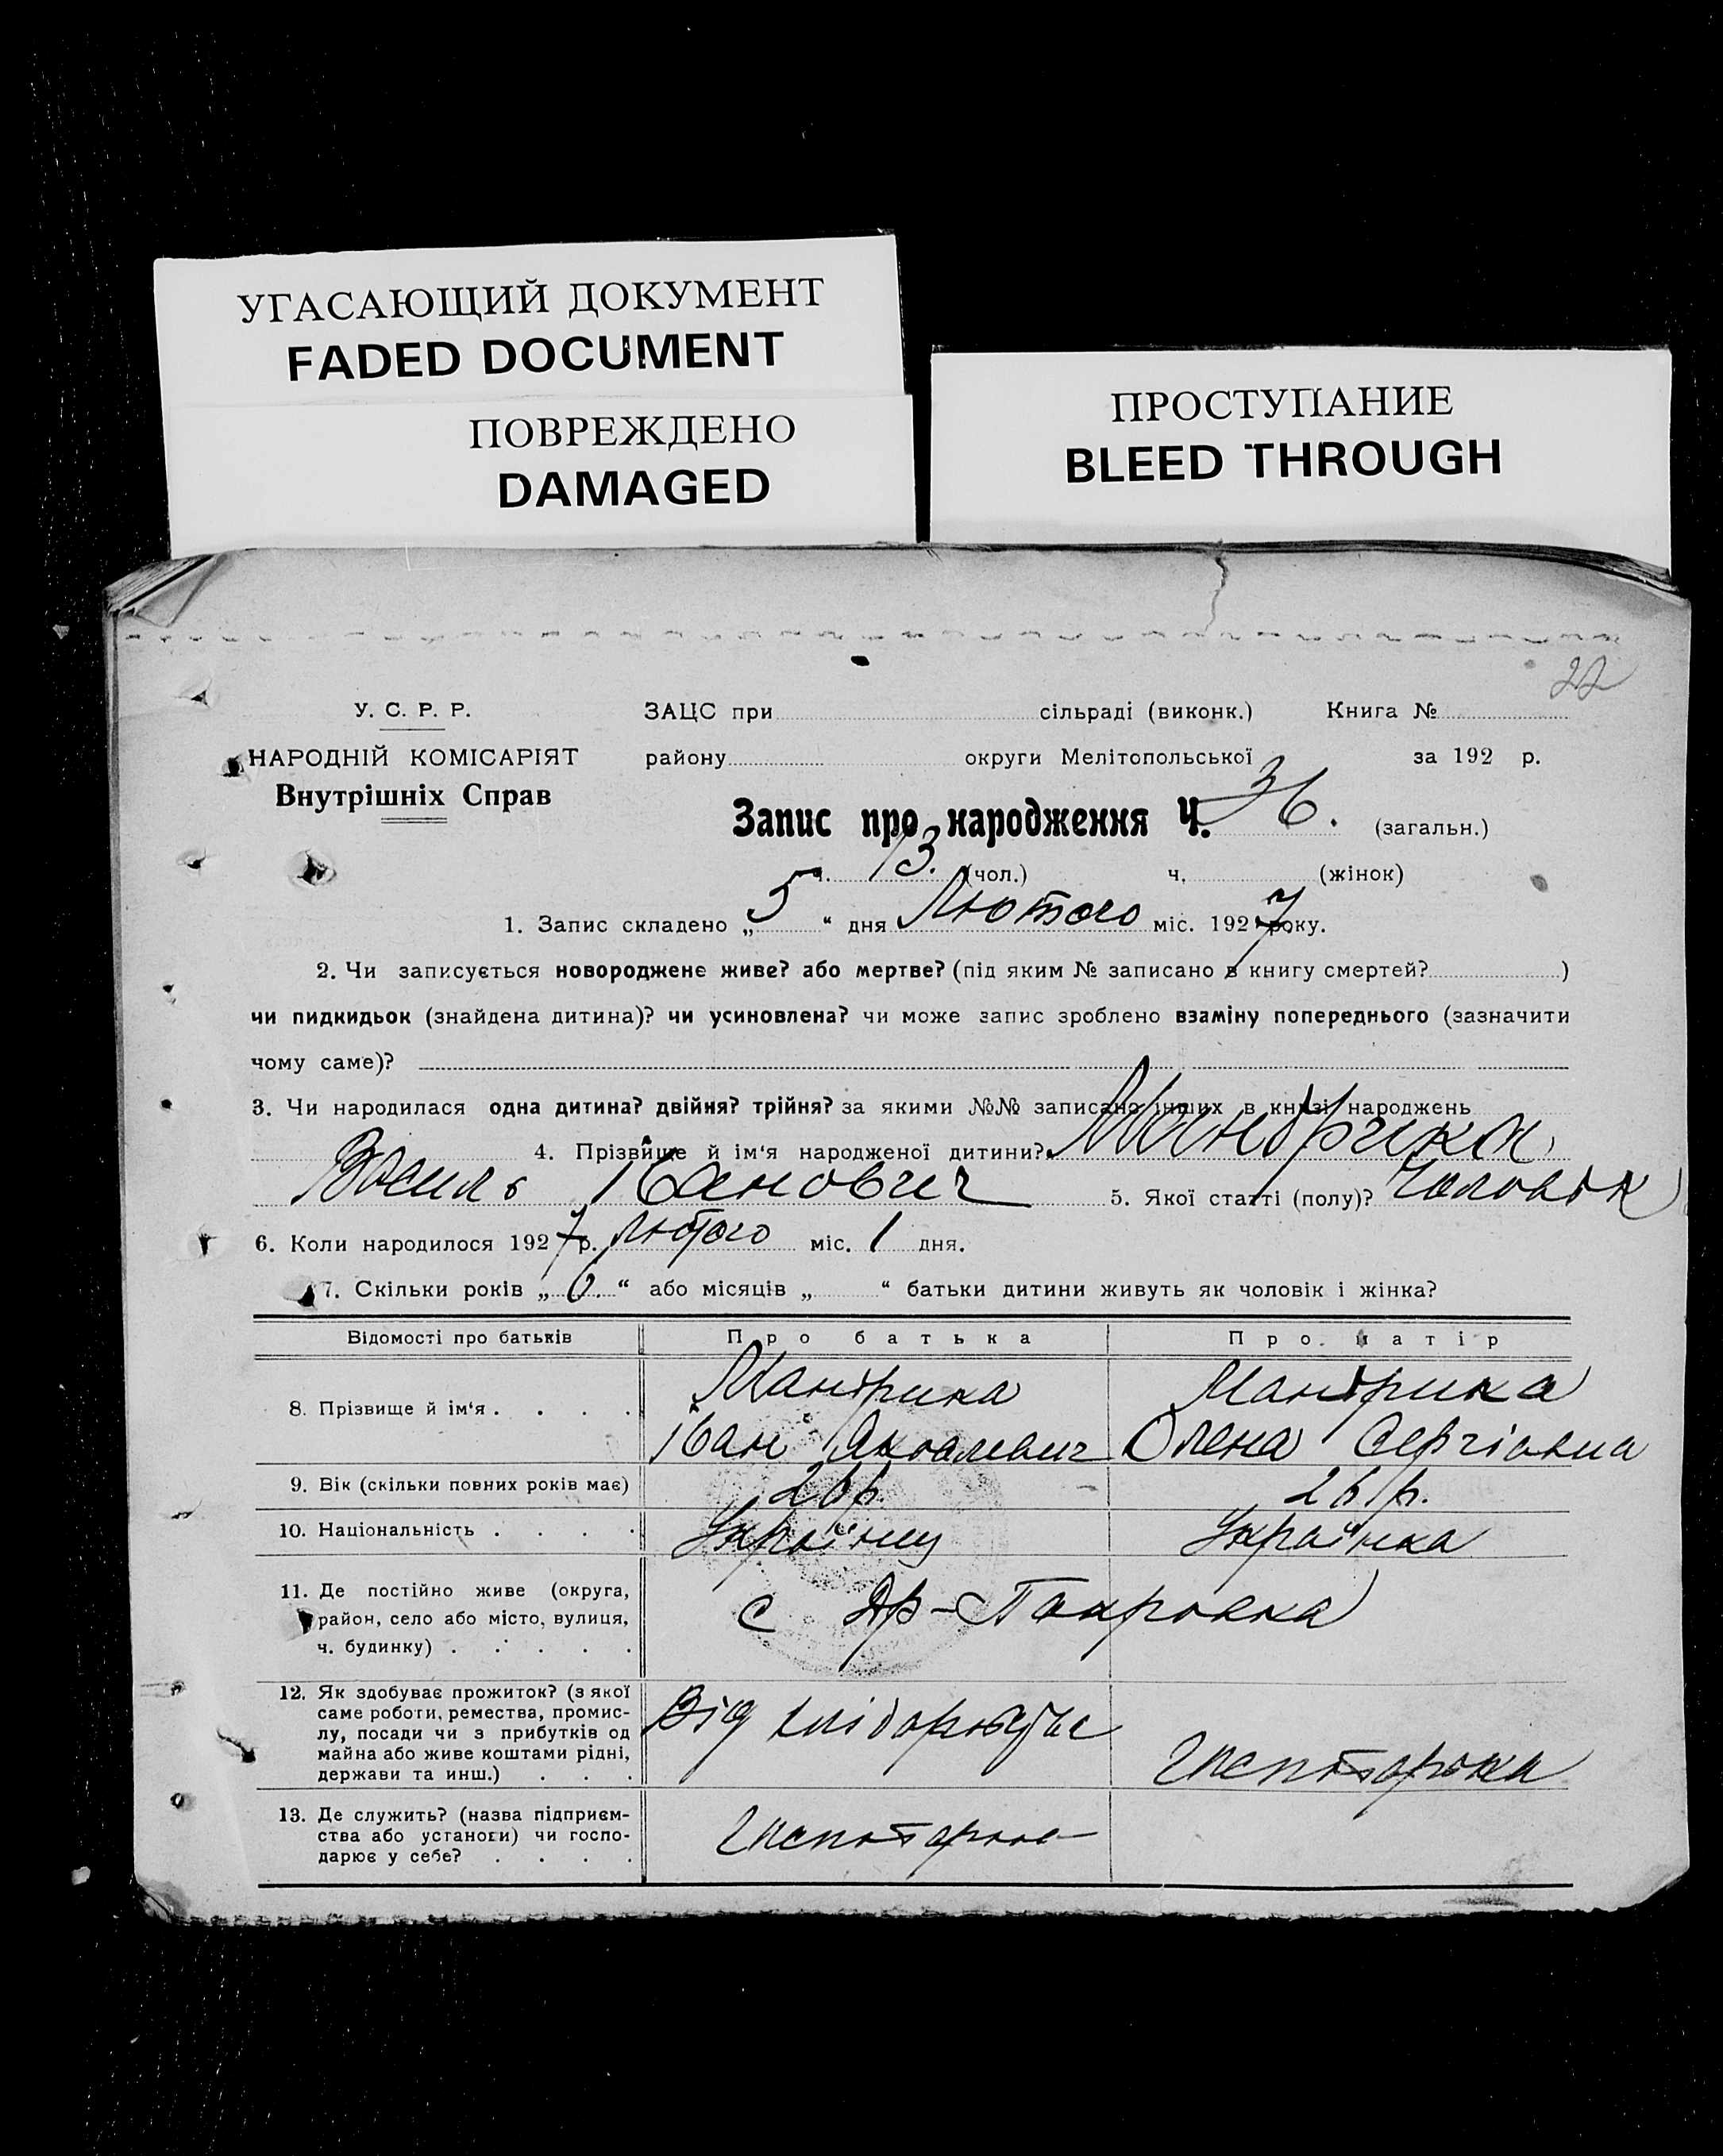 УГАСАЮЩИЙ ДОКУМЕНТ
FADED DOCUMENT
ПОВРЕЖДЕНО
DAMAGED
ПРОСТУПАНИЕ
BLEED THROUGH
22
У. С. Р. Р.
НАРОДНІЙ КОМІСАРІЯТ
Внутрішніх Справ
ЗАЦС при сільраді (виконк.) Книга №
району округи Мелітопольської за 192 р.
Запис про народження Ч. 36. (загальн.)
ч. 13. (чол.) ч. (жінок)
1. Запис складено „5“ дня Лютого міс. 1927 року.
2. Чи записується новороджене живе? або мертве? (під яким № записано в книгу смертей? )
чи пидкидьок (знайдена дитина)? чи усиновлена? чи може запис зроблено взаміну попереднього (зазначити
чому саме)?
3. Чи народилася одна дитина? двійня? трійня? за якими №№ записано інших в книзі народжень
4. Прізвище й ім‘я народженої дитини? Мандрика
Василь Іванович 5. Якої статті (полу)? Чоловік
6. Коли народилося 1927 р. Лютого міс. 1 дня.
7. Скільки років „6.“ або місяців „ “ батьки дитини живуть як чоловік і жінка?
Відомості про батьків Про батька Про матір
8. Прізвище й ім‘я . . . . Мандрика Мандрика
Іван Якович Олена Сергіовна
9. Вік (скільки повних років має) 26 р. 26 р.
10. Національність . . . . Українц Українка
11. Де постійно живе (округа,
район, село або місто, вулиця,
ч. будинку) . . . . .
с Покровка
12. Як здобуває прожиток? (з якої
саме роботи, ремества, промис-
лу, посади чи з прибутків од
майна або живе коштами рідні,
держави та инш.) . . .
Від
13. Де служить? (назва підприєм-
ства або установи) чи госпо-
дарює у себе? . . . .